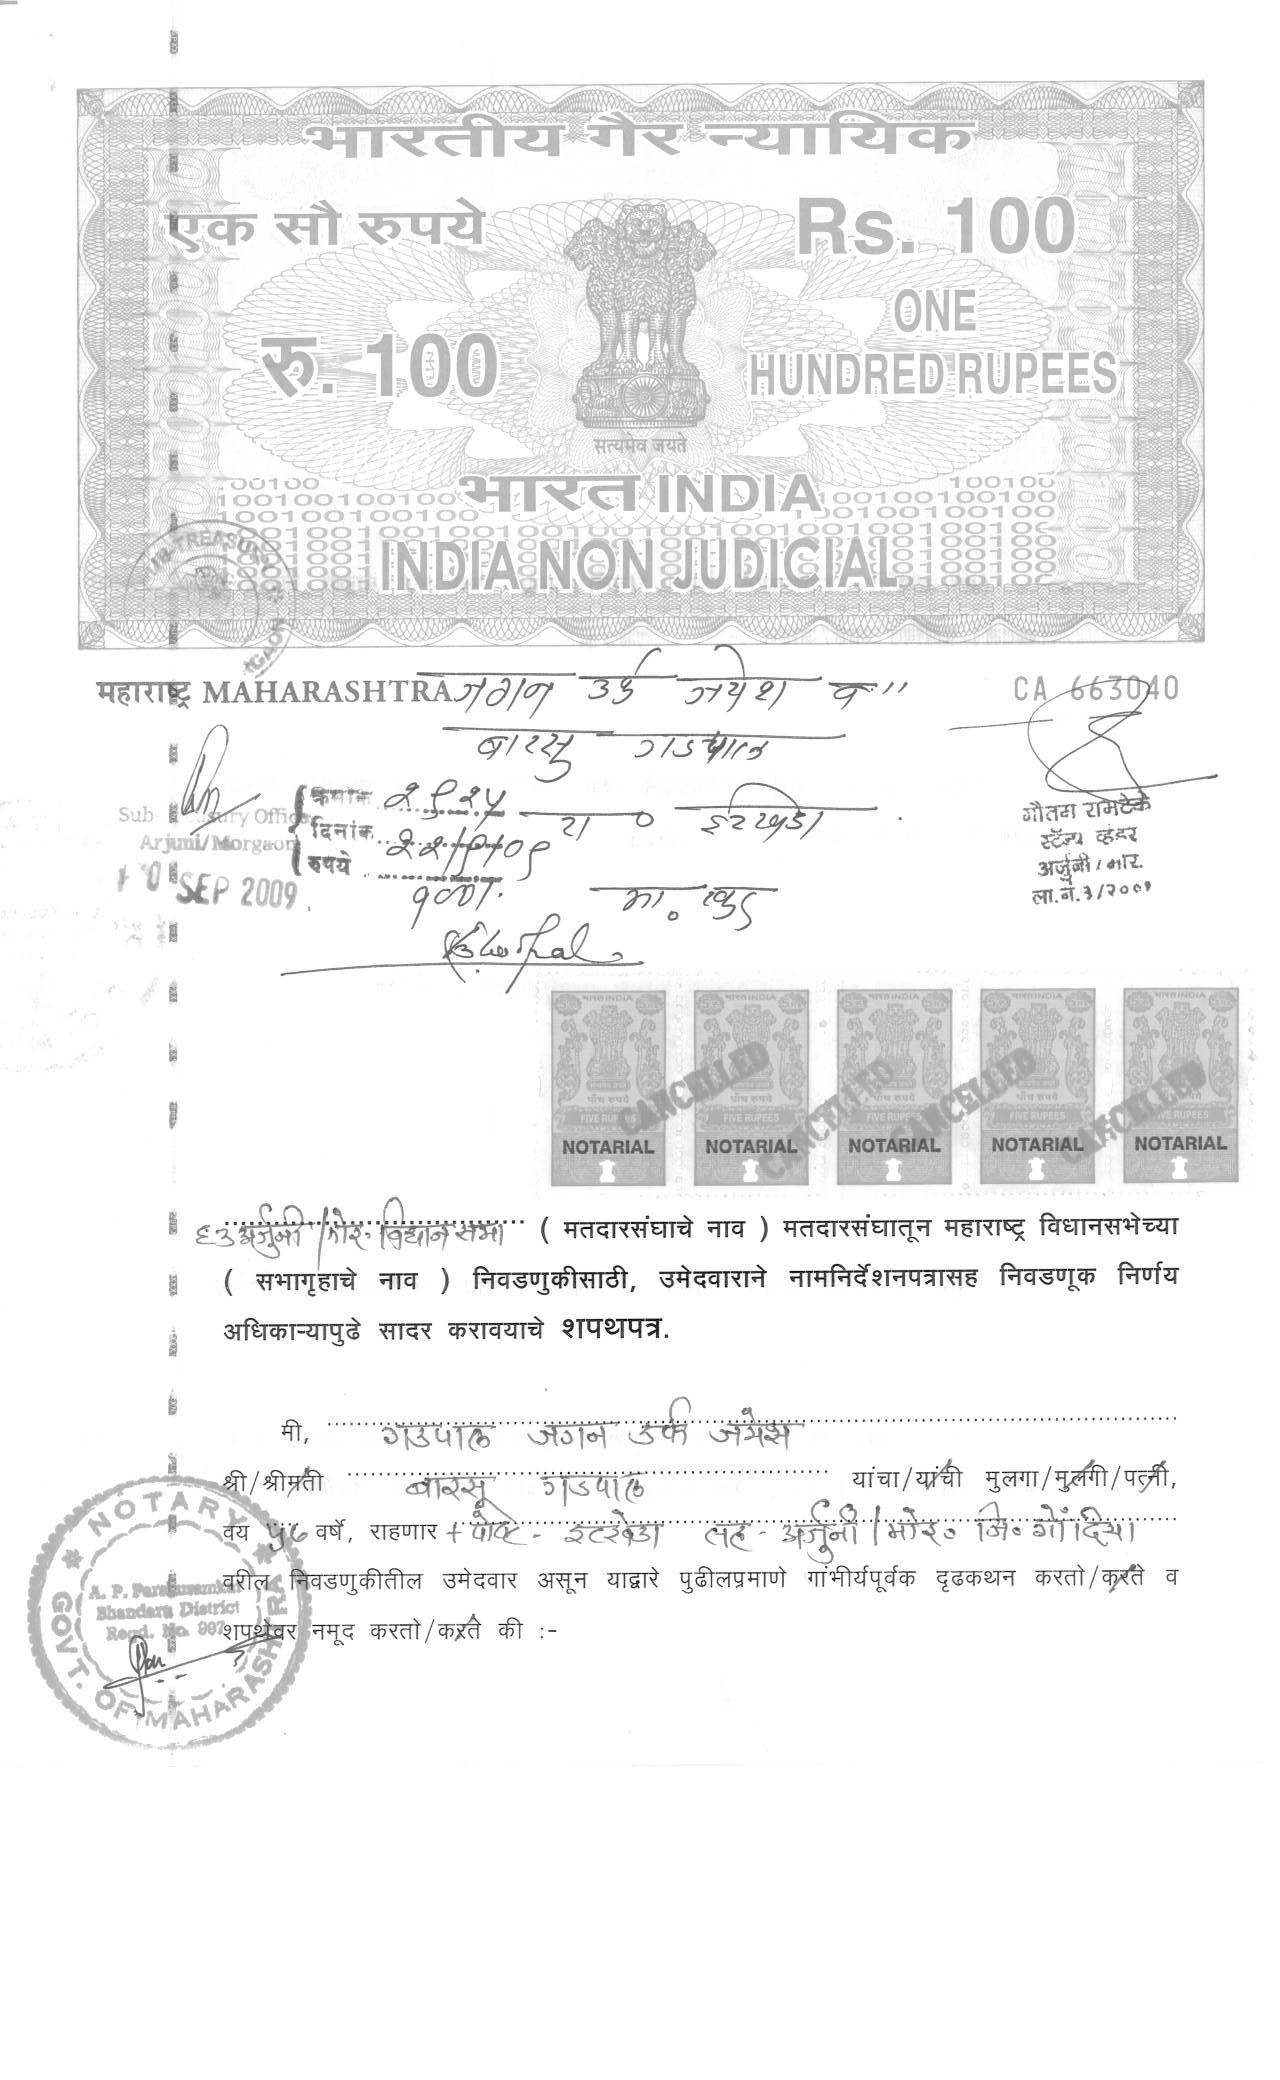 भारतीय गैर न्यायिक
एक सौ रुपये
Rs. 100
रु. 100
ONE
HUNDRED RUPEES
सत्यमेव जयते
भारत INDIA
INDIA NON JUDICIAL
महाराष्ट्र MAHARASHTRA
जगन उर्फ जयेश व
CA 663040
बारसु गडपाल
क्रमांक २९२५ रा० इटखेडा
Sub Treasury Officer
दिनांक २२/९/०९
Arjuni/Morgaon
रुपये १००/-
10 SEP 2009
गौतम रामटेके
स्टॅम्प व्हेंडर
अर्जुनी/मोर.
ला.नं.३/२००१
भारत INDIA भारत INDIA भारत INDIA भारत INDIA भारत INDIA
पाँच रुपये पाँच रुपये पाँच रुपये पाँच रुपये पाँच रुपये
FIVE RUPEES FIVE RUPEES FIVE RUPEES FIVE RUPEES FIVE RUPEES
CANCELLED CANCELLED CANCELLED CANCELLED
NOTARIAL NOTARIAL NOTARIAL NOTARIAL NOTARIAL
६३ अर्जुनी/मोर. विधानसभा ( मतदारसंघाचे नाव ) मतदारसंघातून महाराष्ट्र विधानसभेच्या
( सभागृहाचे नाव ) निवडणुकीसाठी, उमेदवाराने नामनिर्देशनपत्रासह निवडणूक निर्णय
अधिकाऱ्यापुढे सादर करावयाचे शपथपत्र.
मी, गडपाल जगन उर्फ जयेश
श्री/श्रीमती बारसू गडपाल यांचा/यांची मुलगा/मुलगी/पत्नी,
वय ५८ वर्षे, राहणार + पोष्ट - इटखेडा तह - अर्जुनी/मोर० जि० गोंदिया
वरील निवडणुकीतील उमेदवार असून याद्वारे पुढीलप्रमाणे गांभीर्यपूर्वक दृढकथन करतो/करते व
शपथेवर नमूद करतो/करते की :-
NOTARY
A. P. Parashuramkar
Bhandara District
Regd. No. 997
GOVT. OF MAHARASHTRA